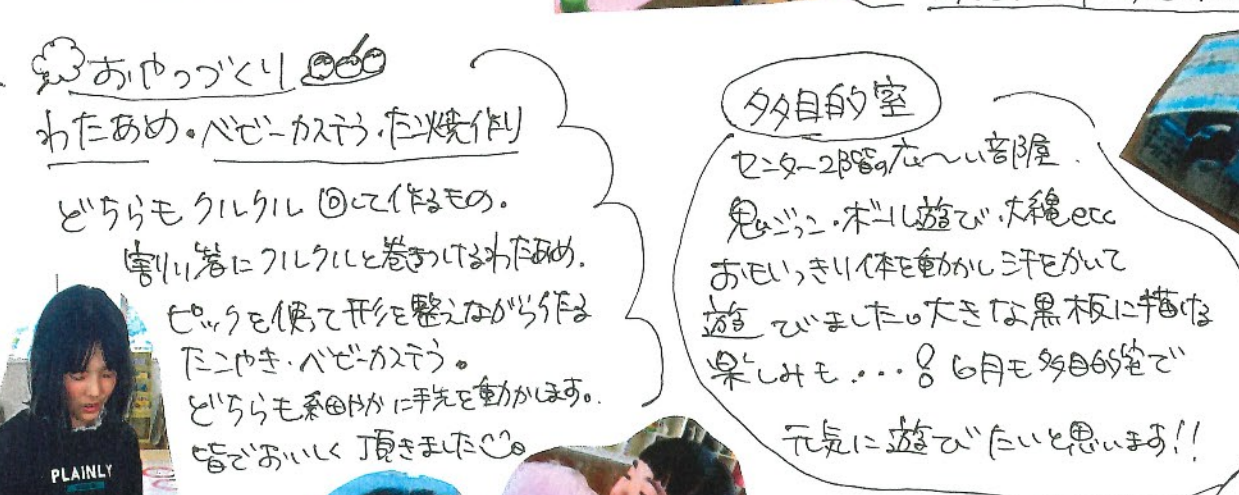 おやつづくり
わたあめ・ベビーカステラ・たこ焼作り
どちらもクルクル回して作るもの。
割り箸にクルクルと巻きつけるわたあめ。
ピックを使って形を整えながら作る
たこやき・ベビーカステラ。
どちらも細やかに手先を動かします。
皆でおいしく頂きました
PLAINLY
多目的室
センター2階の広〜い部屋.
鬼ごっこ・ボール遊び・大縄etc
おもいっきり体を動かし汗をかいて
遊びました。大きな黒板に描ける
楽しみも・・・! 6月も多目的室で
元気に遊びたいと思います!!